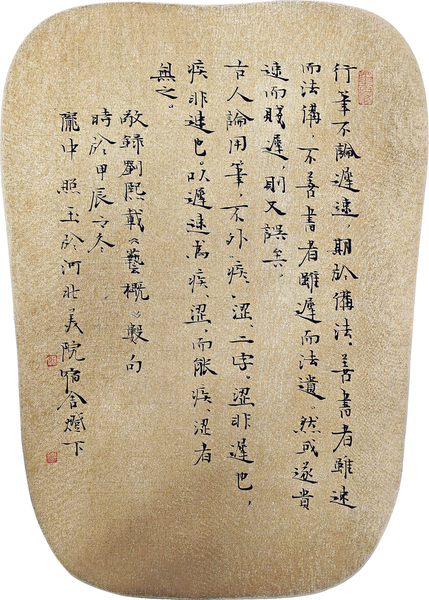 行筆不論遲速，期於備法，善書者雖速
而法備，不善書者雖遲而法遺。然或遂貴
速而賤遲，則又誤矣。
古人論用筆，不外疾、澀二字。澀非遲也，
疾非速也。以遲速為疾、澀，而能疾、澀者
無之。
敬録劉熙載《藝概》數句
時於甲辰之冬
龐中照玉於河北美院宿舍燈下